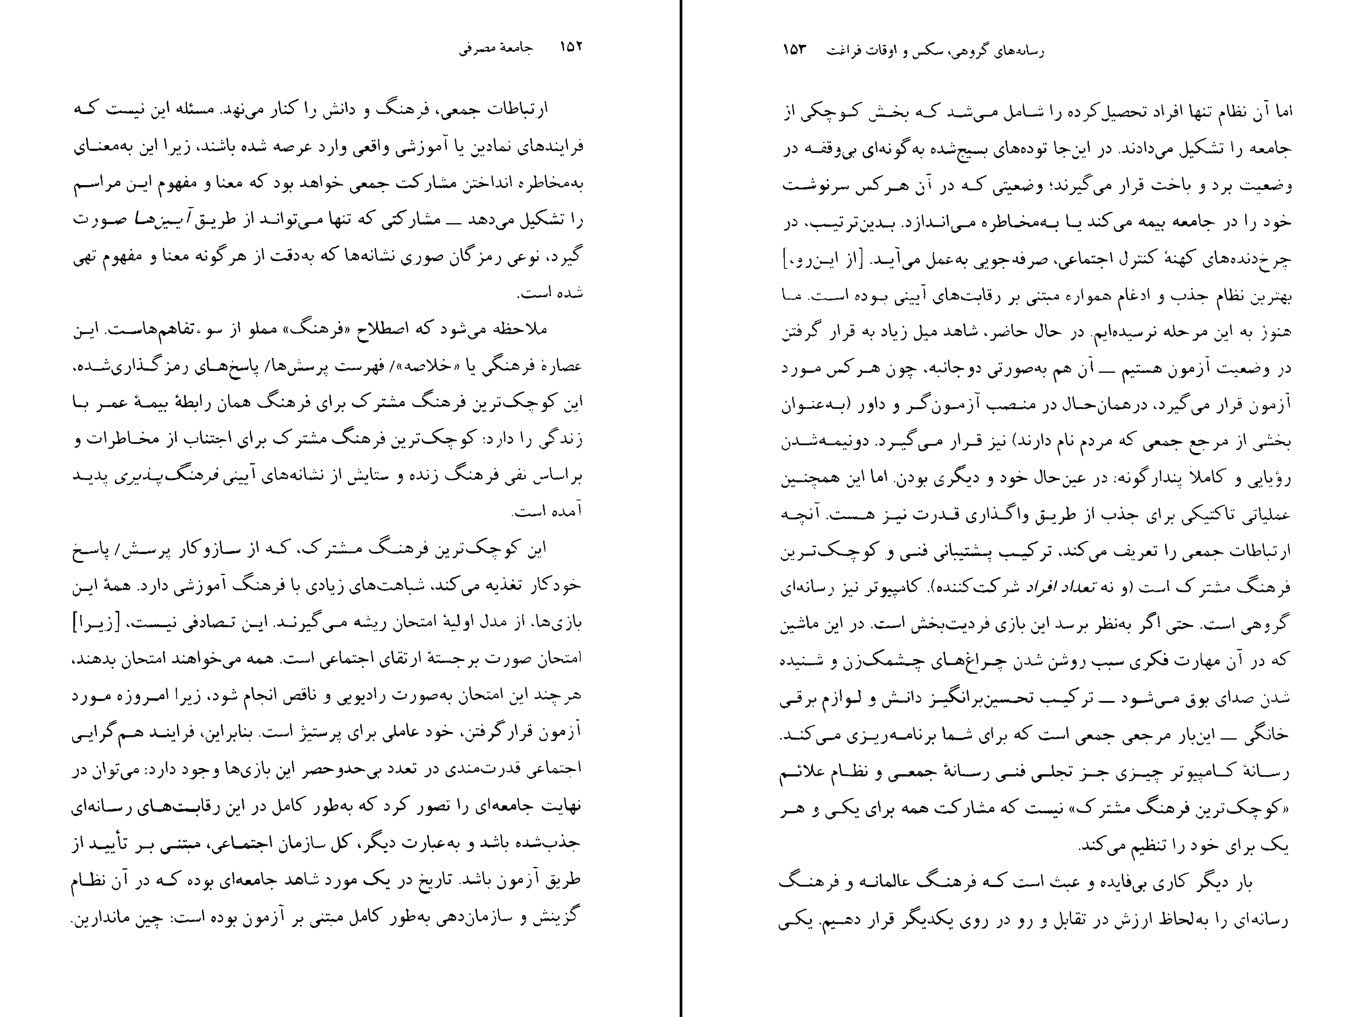 ۱۵۲ جامعهٔ مصرفی
ارتباطات جمعی، فرهنگ و دانش را کنار می‌نهد. مسئله این نیست که
فرایندهای نمادین یا آموزشی واقعی وارد عرصه شده باشند، زیرا این به‌معنای
به‌مخاطره انداختن مشارکت جمعی خواهد بود که معنا و مفهوم این مراسم
را تشکیل می‌دهد — مشارکتی که تنها می‌تواند از طریق آیین‌ها صورت
گیرد، نوعی رمزگان صوری نشانه‌ها که به‌دقت از هرگونه معنا و مفهوم تهی
شده است.
ملاحظه می‌شود که اصطلاح «فرهنگ» مملو از سوءتفاهم‌هاست. این
عصارهٔ فرهنگی یا «خلاصه»/ فهرست پرسش‌ها/ پاسخ‌های رمزگذاری‌شده،
این کوچک‌ترین فرهنگ مشترک برای فرهنگ همان رابطهٔ بیمهٔ عمر با
زندگی را دارد: کوچک‌ترین فرهنگ مشترک برای اجتناب از مخاطرات و
براساس نفی فرهنگ زنده و ستایش از نشانه‌های آیینی فرهنگ‌پذیری پدید
آمده است.
این کوچک‌ترین فرهنگ مشترک، که از سازوکار پرسش/ پاسخ
خودکار تغذیه می‌کند، شباهت‌های زیادی با فرهنگ آموزشی دارد. همهٔ این
بازی‌ها، از مدل اولیهٔ امتحان ریشه می‌گیرند. این تصادفی نیست، [زیرا]
امتحان صورت برجستهٔ ارتقای اجتماعی است. همه می‌خواهند امتحان بدهند،
هرچند این امتحان به‌صورت رادیویی و ناقص انجام شود، زیرا امروزه مورد
آزمون قرارگرفتن، خود عاملی برای پرستیژ است. بنابراین، فرایند هم‌گرایی
اجتماعی قدرت‌مندی در تعدد بی‌حدوحصر این بازی‌ها وجود دارد: می‌توان در
نهایت جامعه‌ای را تصور کرد که به‌طور کامل در این رقابت‌های رسانه‌ای
جذب‌شده باشد و به‌عبارت دیگر، کل سازمان اجتماعی، مبتنی بر تأیید از
طریق آزمون باشد. تاریخ در یک مورد شاهد جامعه‌ای بوده که در آن نظام
گزینش و سازمان‌دهی به‌طور کامل مبتنی بر آزمون بوده است: چین ماندارین.
رسانه‌های گروهی، سکس و اوقات فراغت ۱۵۳
اما آن نظام تنها افراد تحصیل‌کرده را شامل می‌شد که بخش کوچکی از
جامعه را تشکیل می‌دادند. در این‌جا توده‌های بسیج‌شده به‌گونه‌ای بی‌وقفه در
وضعیت برد و باخت قرار می‌گیرند؛ وضعیتی که در آن هرکس سرنوشت
خود را در جامعه بیمه می‌کند یا به‌مخاطره می‌اندازد. بدین‌ترتیب، در
چرخ‌دنده‌های کهنهٔ کنترل اجتماعی، صرفه‌جویی به‌عمل می‌آید. [از این‌رو،]
بهترین نظام جذب و ادغام همواره مبتنی بر رقابت‌های آیینی بوده است. ما
هنوز به این مرحله نرسیده‌ایم. در حال حاضر، شاهد میل زیاد به قرار گرفتن
در وضعیت آزمون هستیم — آن هم به‌صورتی دوجانبه، چون هرکس مورد
آزمون قرار می‌گیرد، درهمان‌حال در منصب آزمون‌گر و داور (به‌عنوان
بخشی از مرجع جمعی که مردم نام دارند) نیز قرار می‌گیرد. دونیمه‌شدن
رؤیایی و کاملاً پندارگونه: در عین‌حال خود و دیگری بودن. اما این همچنین
عملیاتی تاکتیکی برای جذب از طریق واگذاری قدرت نیز هست. آنچه
ارتباطات جمعی را تعریف می‌کند، ترکیب پشتیبانی فنی و کوچک‌ترین
فرهنگ مشترک است (و نه تعداد افراد شرکت‌کننده). کامپیوتر نیز رسانه‌ای
گروهی است. حتی اگر به‌نظر برسد این بازی فردیت‌بخش است. در این ماشین
که در آن مهارت فکری سبب روشن شدن چراغ‌های چشمک‌زن و شنیده
شدن صدای بوق می‌شود — ترکیب تحسین‌برانگیز دانش و لوازم برقی
خانگی — این‌بار مرجعی جمعی است که برای شما برنامه‌ریزی می‌کند.
رسانهٔ کامپیوتر چیزی جز تجلی فنی رسانهٔ جمعی و نظام علائم
«کوچک‌ترین فرهنگ مشترک» نیست که مشارکت همه برای یکی و هر
یک برای خود را تنظیم می‌کند.
بار دیگر کاری بی‌فایده و عبث است که فرهنگ عالمانه و فرهنگ
رسانه‌ای را به‌لحاظ ارزش در تقابل و رو در روی یکدیگر قرار دهیم. یکی